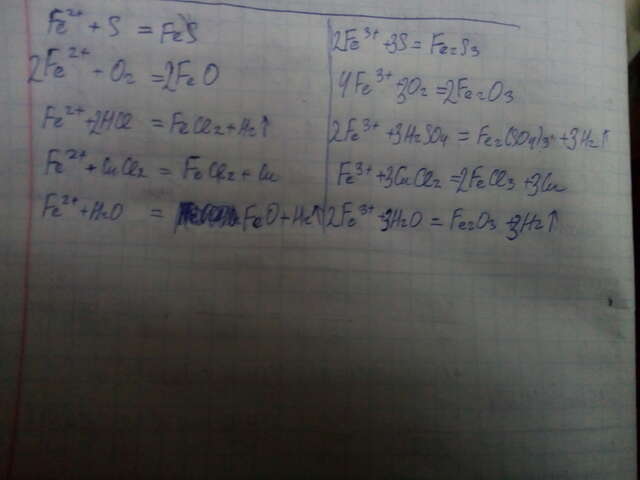 Fe²⁺ + S = FeS
2Fe²⁺ + O₂ = 2FeO
Fe²⁺ + 2HCl = FeCl₂ + H₂↑
Fe²⁺ + CuCl₂ = FeCl₂ + Cu
Fe²⁺ + H₂O = FeO + H₂↑
2Fe³⁺ + 3S = Fe₂S₃
4Fe³⁺ + 3O₂ = 2Fe₂O₃
2Fe³⁺ + 3H₂SO₄ = Fe₂(SO₄)₃ + 3H₂↑
Fe³⁺ + 3CuCl₂ = 2FeCl₃ + 3Cu
2Fe³⁺ + 3H₂O = Fe₂O₃ + 3H₂↑